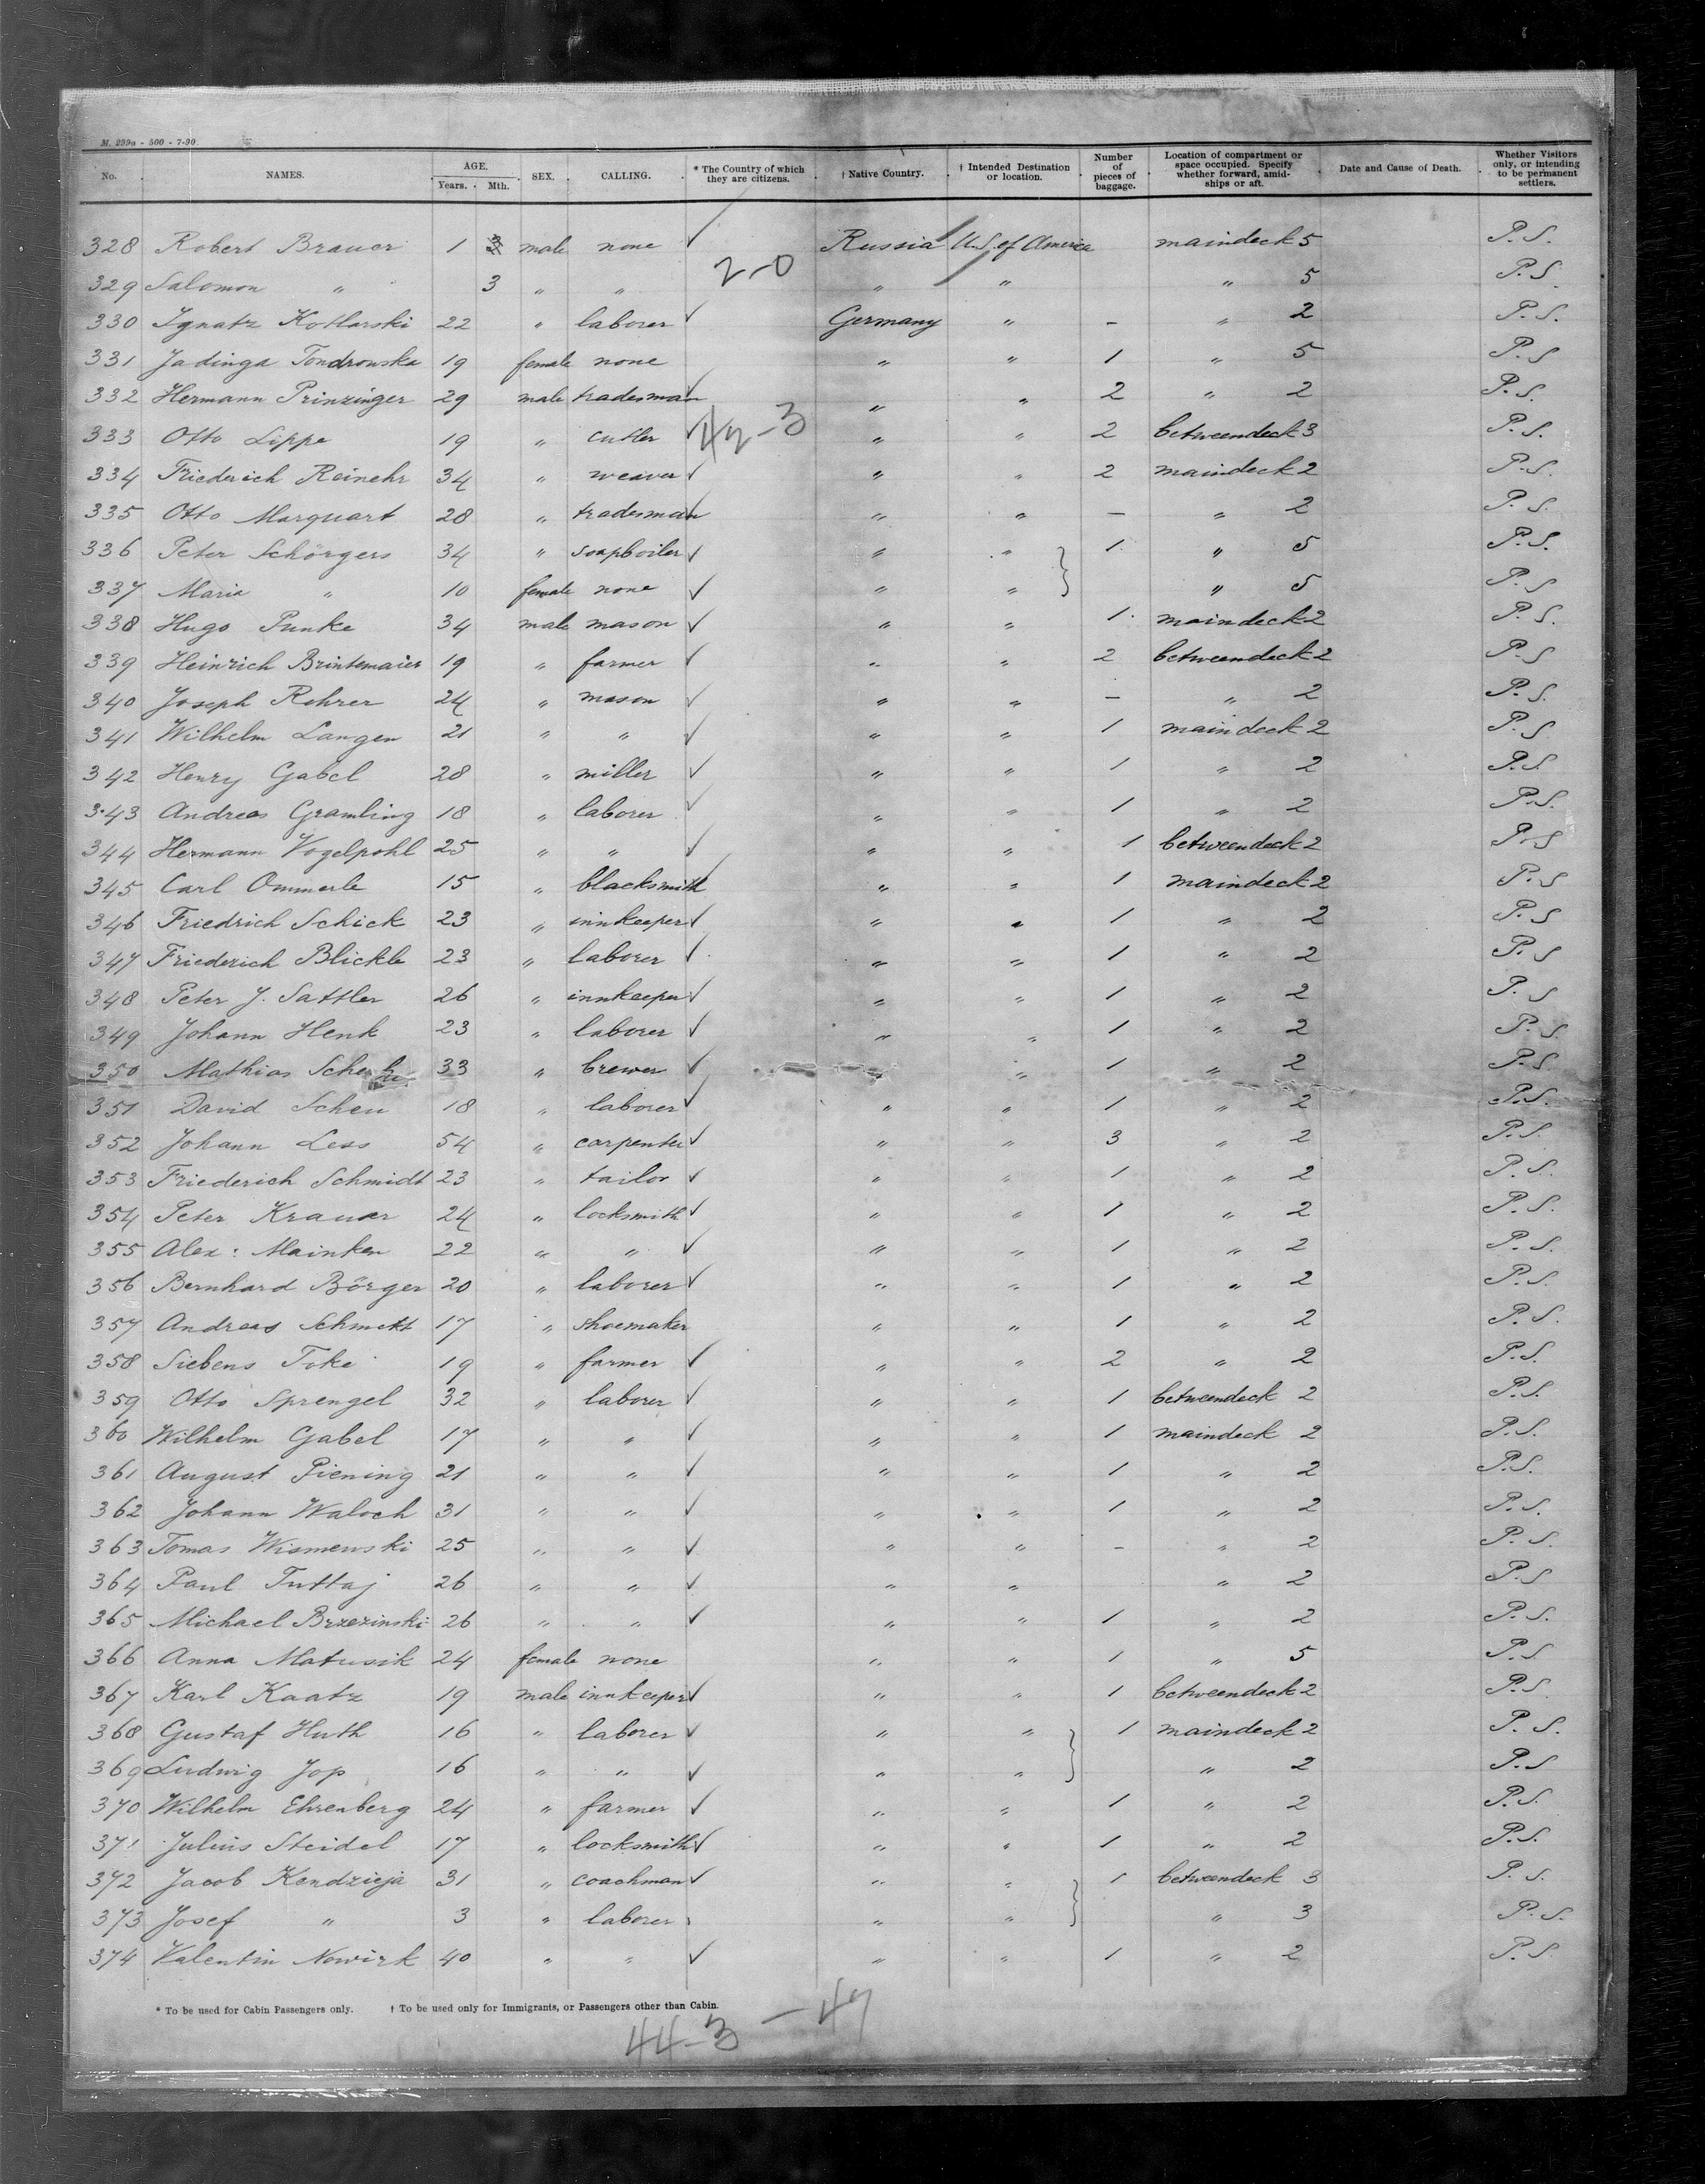 M. 299a - 500 - 7-90
No. NAMES. AGE. Years. Mth. SEX. CALLING. * The Country of which they are citizens. † Native Country. † Intended Destination or location. Number of pieces of baggage. Location of compartment or space occupied. Specify whether forward, amidships or aft. Date and Cause of Death. Whether Visitors only, or intending to be permanent settlers.
328 Robert Brauer 1 male none ✓ Russia U.S. of America maindeck 5 P.S.
2-0
329 Salomon " 3 " " " " " 5 P.S.
330 Ignatz Kotlarski 22 " laborer ✓ Germany " - " 2 P.S.
331 Jadinga Tondrowska 19 female none " " 1 " 5 P.S
332 Hermann Prinzinger 29 male tradesman ✓ " " 2 " 2 P.S.
333 Otto Lippe 19 " cutler ✓ 42-3 " " 2 betweendeck 3 P.S.
334 Friederich Reinehr 34 " weaver ✓ " " 2 maindeck 2 P.S.
335 Otto Marquart 28 " tradesman ✓ " " - " 2 P.S.
336 Peter Schörgers 34 " soapboiler ✓ " " } 1 " 5 P.S.
337 Maria " 10 female none ✓ " " " 5 P.S
338 Hugo Punke 34 male mason ✓ " " 1 maindeck 2 P.S.
339 Heinrich Brintemaier 19 " farmer ✓ " " 2 betweendeck 2 P.S
340 Joseph Rohrer 24 " mason ✓ " " - " 2 P.S.
341 Wilhelm Langen 21 " " ✓ " " 1 maindeck 2 P.S
342 Henry Gabel 28 " miller ✓ " " 1 " 2 P.S
343 Andreas Gramling 18 " laborer ✓ " " 1 " 2 P.S.
344 Hermann Vogelpohl 25 " " ✓ " " 1 betweendeck 2 P.S
345 Carl Ommerle 15 " blacksmith ✓ " " 1 maindeck 2 P.S
346 Friedrich Schick 23 " innkeeper ✓ " " 1 " 2 P.S
347 Friederich Blickle 23 " laborer ✓ " " 1 " 2 P.S
348 Peter J. Sattler 26 " innkeeper ✓ " " 1 " 2 P.S
349 Johann Henk 23 " laborer ✓ " " 1 " 2 P.S.
350 Mathias 33 " brewer ✓ " 1 " 2 P.S
351 David Scheu 18 " laborer ✓ " " 1 " 2 P.S.
352 Johann Less 54 " carpenter ✓ " " 3 " 2 P.S.
353 Friederich Schmidt 23 " tailor ✓ " " 1 " 2 P.S.
354 Peter Krauser 24 " locksmith ✓ " " 1 " 2 P.S.
355 Alex: Mainken 22 " " ✓ " " 1 " 2 P.S.
356 Bernhard Börger 20 " laborer ✓ " " 1 " 2 P.S.
357 Andreas Schmitt 17 " shoemaker " " 1 " 2 P.S.
358 Siebens Toke 19 " farmer ✓ " " 2 " 2 P.S.
359 Otto Sprengel 32 " laborer ✓ " " 1 betweendeck 2 P.S.
360 Wilhelm Gabel 17 " " ✓ " " 1 maindeck 2 P.S.
361 August Piening 21 " " ✓ " " 1 " 2 P.S.
362 Johann Waloch 31 " " ✓ " " 1 " 2 P.S.
363 Tomas Wismewski 25 " " ✓ " " - " 2 P.S.
364 Paul Tuttaj 26 " " ✓ " " " 2 P.S
365 Michael Brzezinski 26 " " ✓ " " 1 " 2 P.S.
366 Anna Matusik 24 female none " " 1 " 5 P.S
367 Karl Kaatz 19 male innkeeper ✓ " " 1 betweendeck 2 P.S
368 Gustaf Huth 16 " laborer ✓ " " } 1 maindeck 2 P.S.
369 Ludwig Jop 16 " " ✓ " " " 2 P.S
370 Wilhelm Ehrenberg 24 " farmer ✓ " " 1 " 2 P.S.
371 Julius Steidel 17 " locksmith ✓ " " 1 " 2 P.S.
372 Jacob Kendzieja 31 " coachman ✓ " " } 1 betweendeck 3 P.S.
373 Josef " 3 " laborer " " " 3 P.S.
374 Valentin Nowirk 40 " " ✓ " " 1 " 2 P.S.
* To be used for Cabin Passengers only. † To be used only for Immigrants, or Passengers other than Cabin.
44-3 - 47